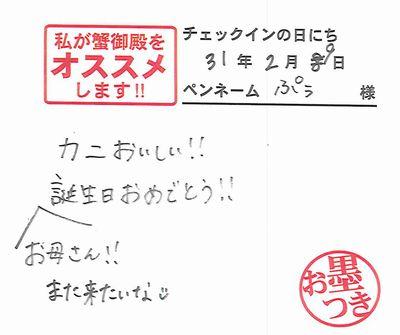 私が蟹御殿を
オススメ
します!!
チェックインの日にち
31年2月9日
ペンネーム ぷぅ 様
カニおいしい!!
誕生日おめでとう!!
お母さん!!
また来たいな
お墨つき